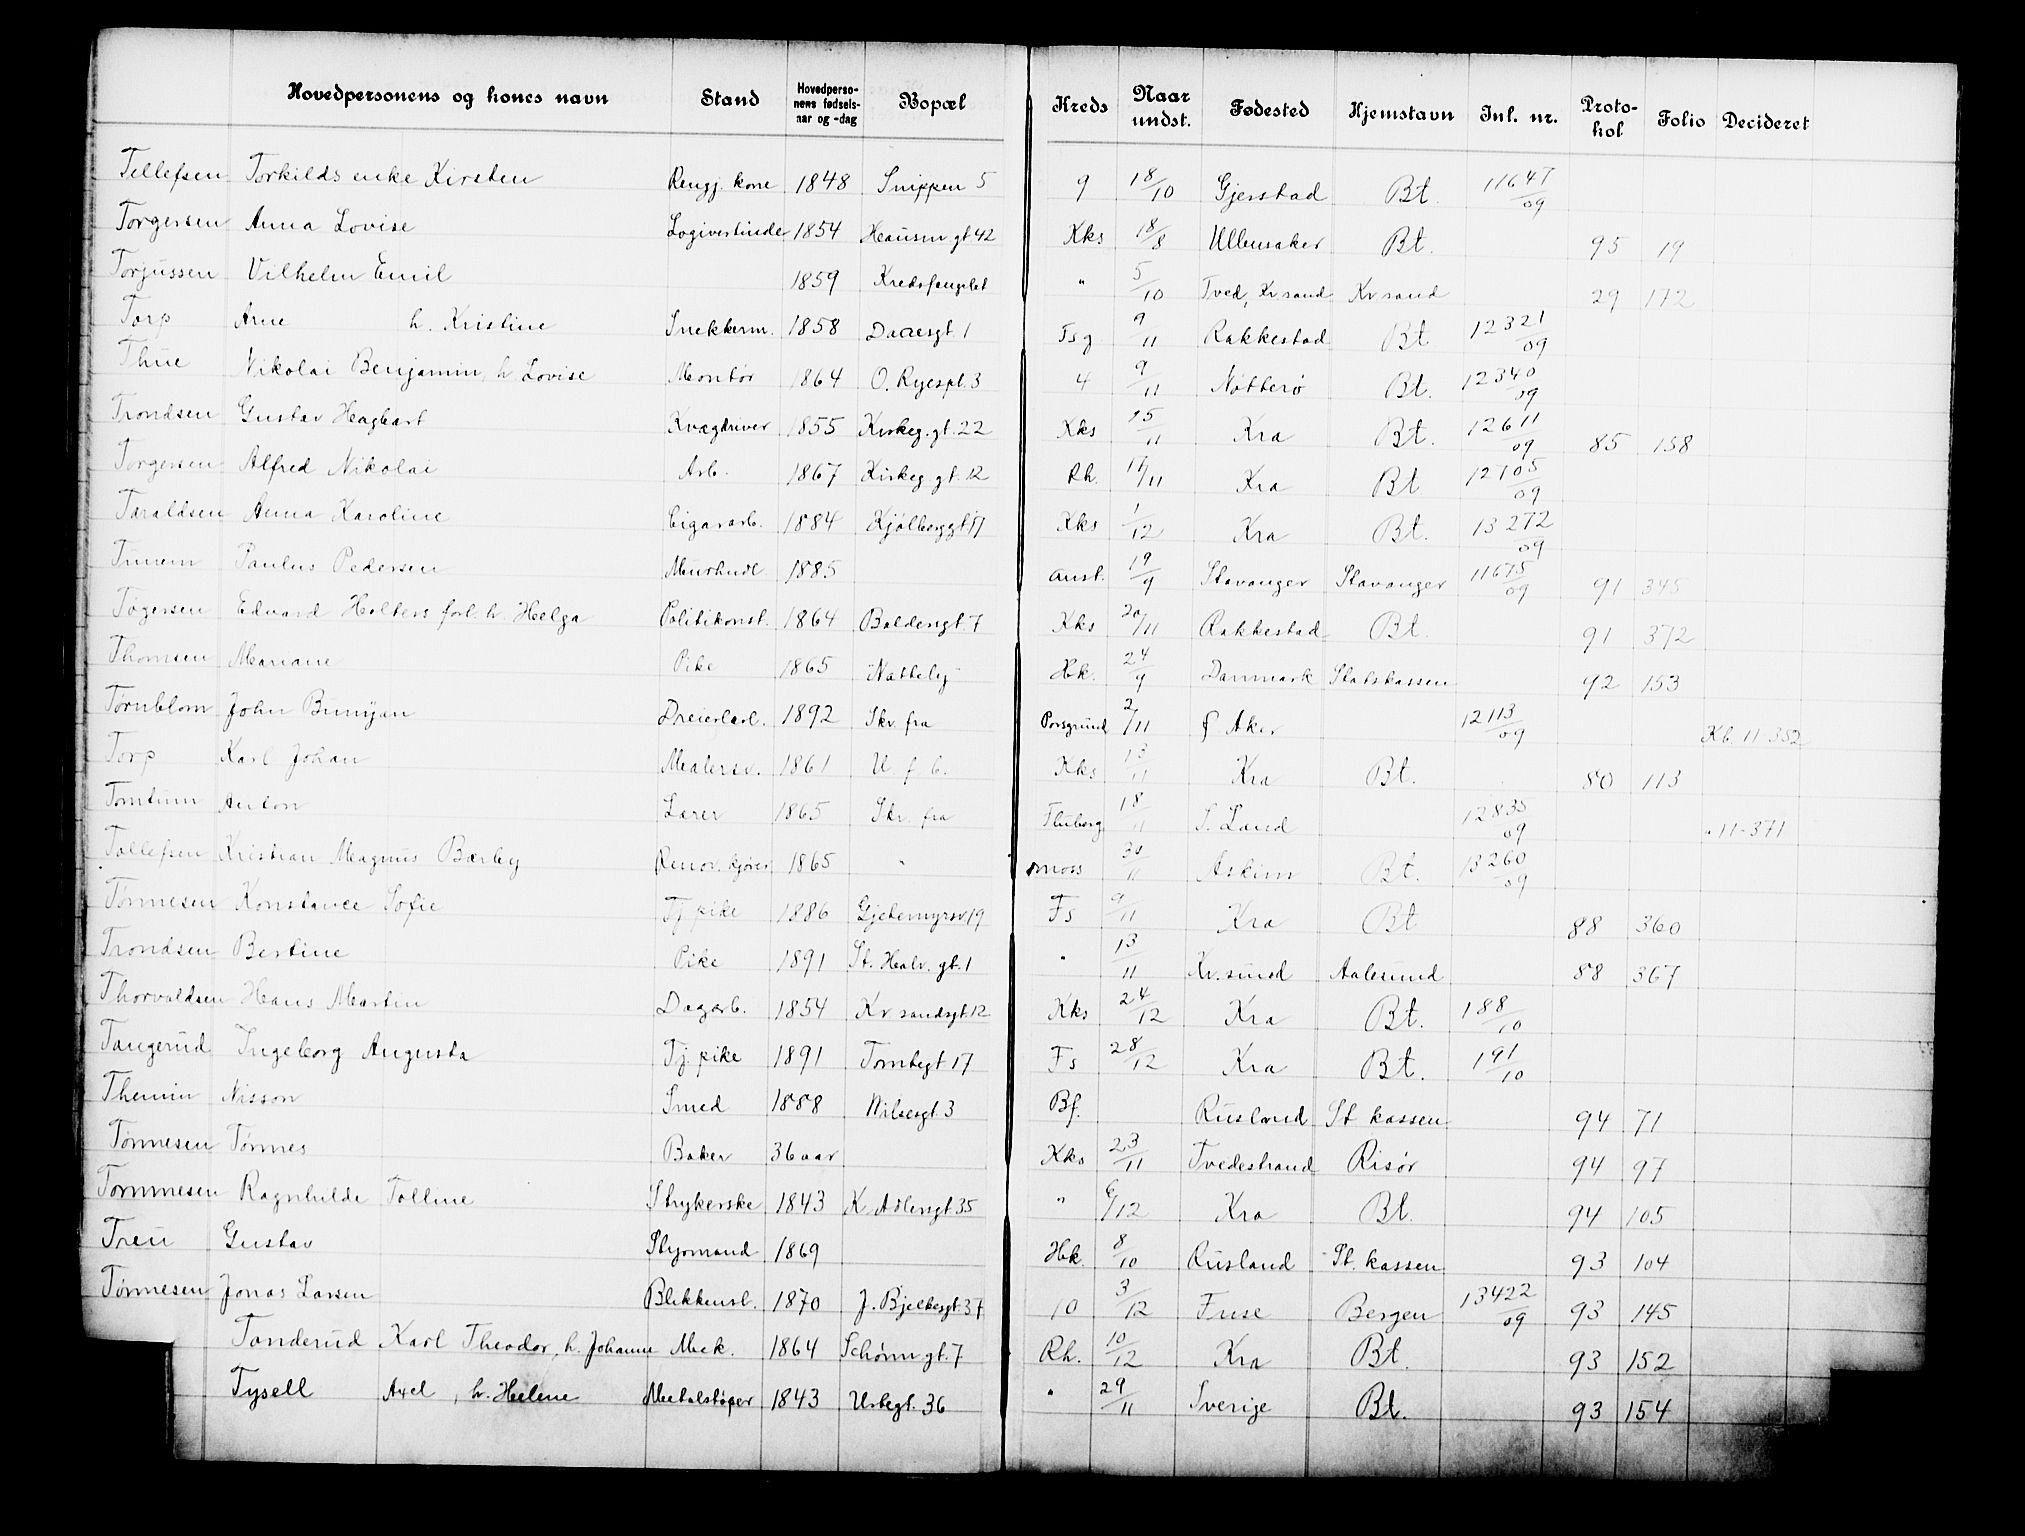 Hovedpersonens og kones navn Stand Hovedpersonens fødselsaar og -dag Bopæl Kreds Naar undst. Fødested Hjemstavn Inl. nr. Protokol Folio Decideret
Tellefsen Torkilds enke Kirsten Rengj. kone 1848 Snippen 5 9 18/10 Gjerstad Bt. 11647/09
Torgersen Anna Lovise Logivertinde 1854 Hausm gt 42 Kks 18/8 Ullensaker Bt. 95 19
Torjussen Vilhelm Emil 1859 Kredsfængslet " 5/10 Tved, Kr.sand Kr sand 29 172
Torp Arne h. Kristine Snekkerm. 1858 Daaesgt. 1 Fsg 9/11 Rakkestad Bt 12321/09
Thue Nikolai Benjamin, h Lovise Montør 1864 O. Ryespl. 3 4 9/11 Nøtterø Bt. 12340/09
Trondsen Gustav Hagbart Kvægdriver 1855 Kirkeg. gt. 22 Kks 15/11 Kra Bt. 12611/09 85 158
Torgersen Alfred Nikolai Arb. 1867 Kirkeg gt. 12 Rh. 17/11 Kra Bt 12705/09
Taraldsen Anna Karoline Cigararb. 1884 Kjølberggt. 17 Kks 1/12 Kra Bt. 13272/09
Timem Paulus Pedersen Murhndl 1885 anst. 19/9 Stavanger Stavanger 11675/09 91 345
Togersen Edvard Holters forl. h. Helga Politikonst. 1864 Baldersgt. 7 Kks 20/11 Rakkestad Bt. 91 372
Thomsen Mariane Pike 1865 "Nattely" Hk. 24/9 Danmark Statskassen 92 153
Tørnblom John Bunyan Dreierlærl. 1892 Skr. fra Porsgrund 2/11 f. Aker 12113/09 Kb. 11-352
Torp Karl Johan Malersv. 1861 U f b. Kks 13/11 Kra Bt. 80 113
Tomtum Anton Lærer 1865 Skr. fra Fluberg 18/11 S. Land 12835/09 " 11-371
Tollefsen Kristian Magnus Bærby Renov. kjører 1865 " Moss 30/11 Askim Bt. 13260/09
Tønnesen Konstance Sofie Tj pike 1886 Gjetemyrsv 19 Fs 9/11 Kra Bt 88 360
Trondsen Bertine Pike 1891 St. Halv. gt. 1 " 13/11 Kr. sund Aalesund 88 367
Thorvaldsen Hans Martin Dagarb. 1854 Kr sandsgt. 12 Kks 24/12 Kra Bt. 188/10
Tangerud Ingeborg Augusta Tj. pike 1891 Tomtegt 17 Fs 28/12 Kra Bt. 191/10
Themin Nisson Smed 1888 Nilsesgt. 3 Bf. Rusland St kassen 94 71
Tønnesen Tønnes Baker 36 aar Kks 23/11 Tvedestrand Risør 94 97
Tømmesen Ragnhilde Tolline Strykerske 1843 K. Adlersgt. 35 " 6/12 Kra Bt. 94 105
Treu Gustav Styrmand 1869 Hk. 8/10 Rusland St. kassen 93 104
Tønnesen Jonas Larsen Blikkensl. 1870 J. Bjelkesgt. 37 10 3/12 Fuse Bergen 13422/09 93 145
Tanderud Karl Theodor, h. Johanne Mek. 1864 Schønn gt. 7 Rh. 10/12 Kra Bt. 93 152
Tysell Axel, h. Helene Metalstøper 1843 Urtegt. 36 " 29/11 Sverige Bt. 93 154